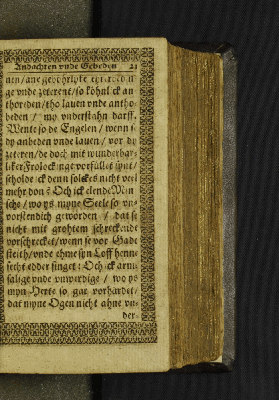 Andachten vnde Gebeden 21
nen / ane geböhrlyke
ge vnde zeterent / so köhnl ick an
thoreden / tho lauen vnde antho-
beden / my vnderstahn darff.
Wente so de Engelen / wenn se
dy anbeden vnde lauen / vor dy
zeteren / de doch mit wunderbar-
liker Frolocking vorfüllet synt /
scholde ick denn solckes nicht veel
mehr don? Och ick elende Min-
sche / wo ys myne Seele so vn-
vorstendich geworden / dat se
nicht mit grohtem schreckende
vorschrecket / wenn se vor Gade
steith / vnde ehme syn Loff henne
secht edder singet: Och ick arm-
salige vnde vnwerdige / wo ys
myn Herte so gar vorhardet /
dat myne Ogen nicht ahne vn-
der-